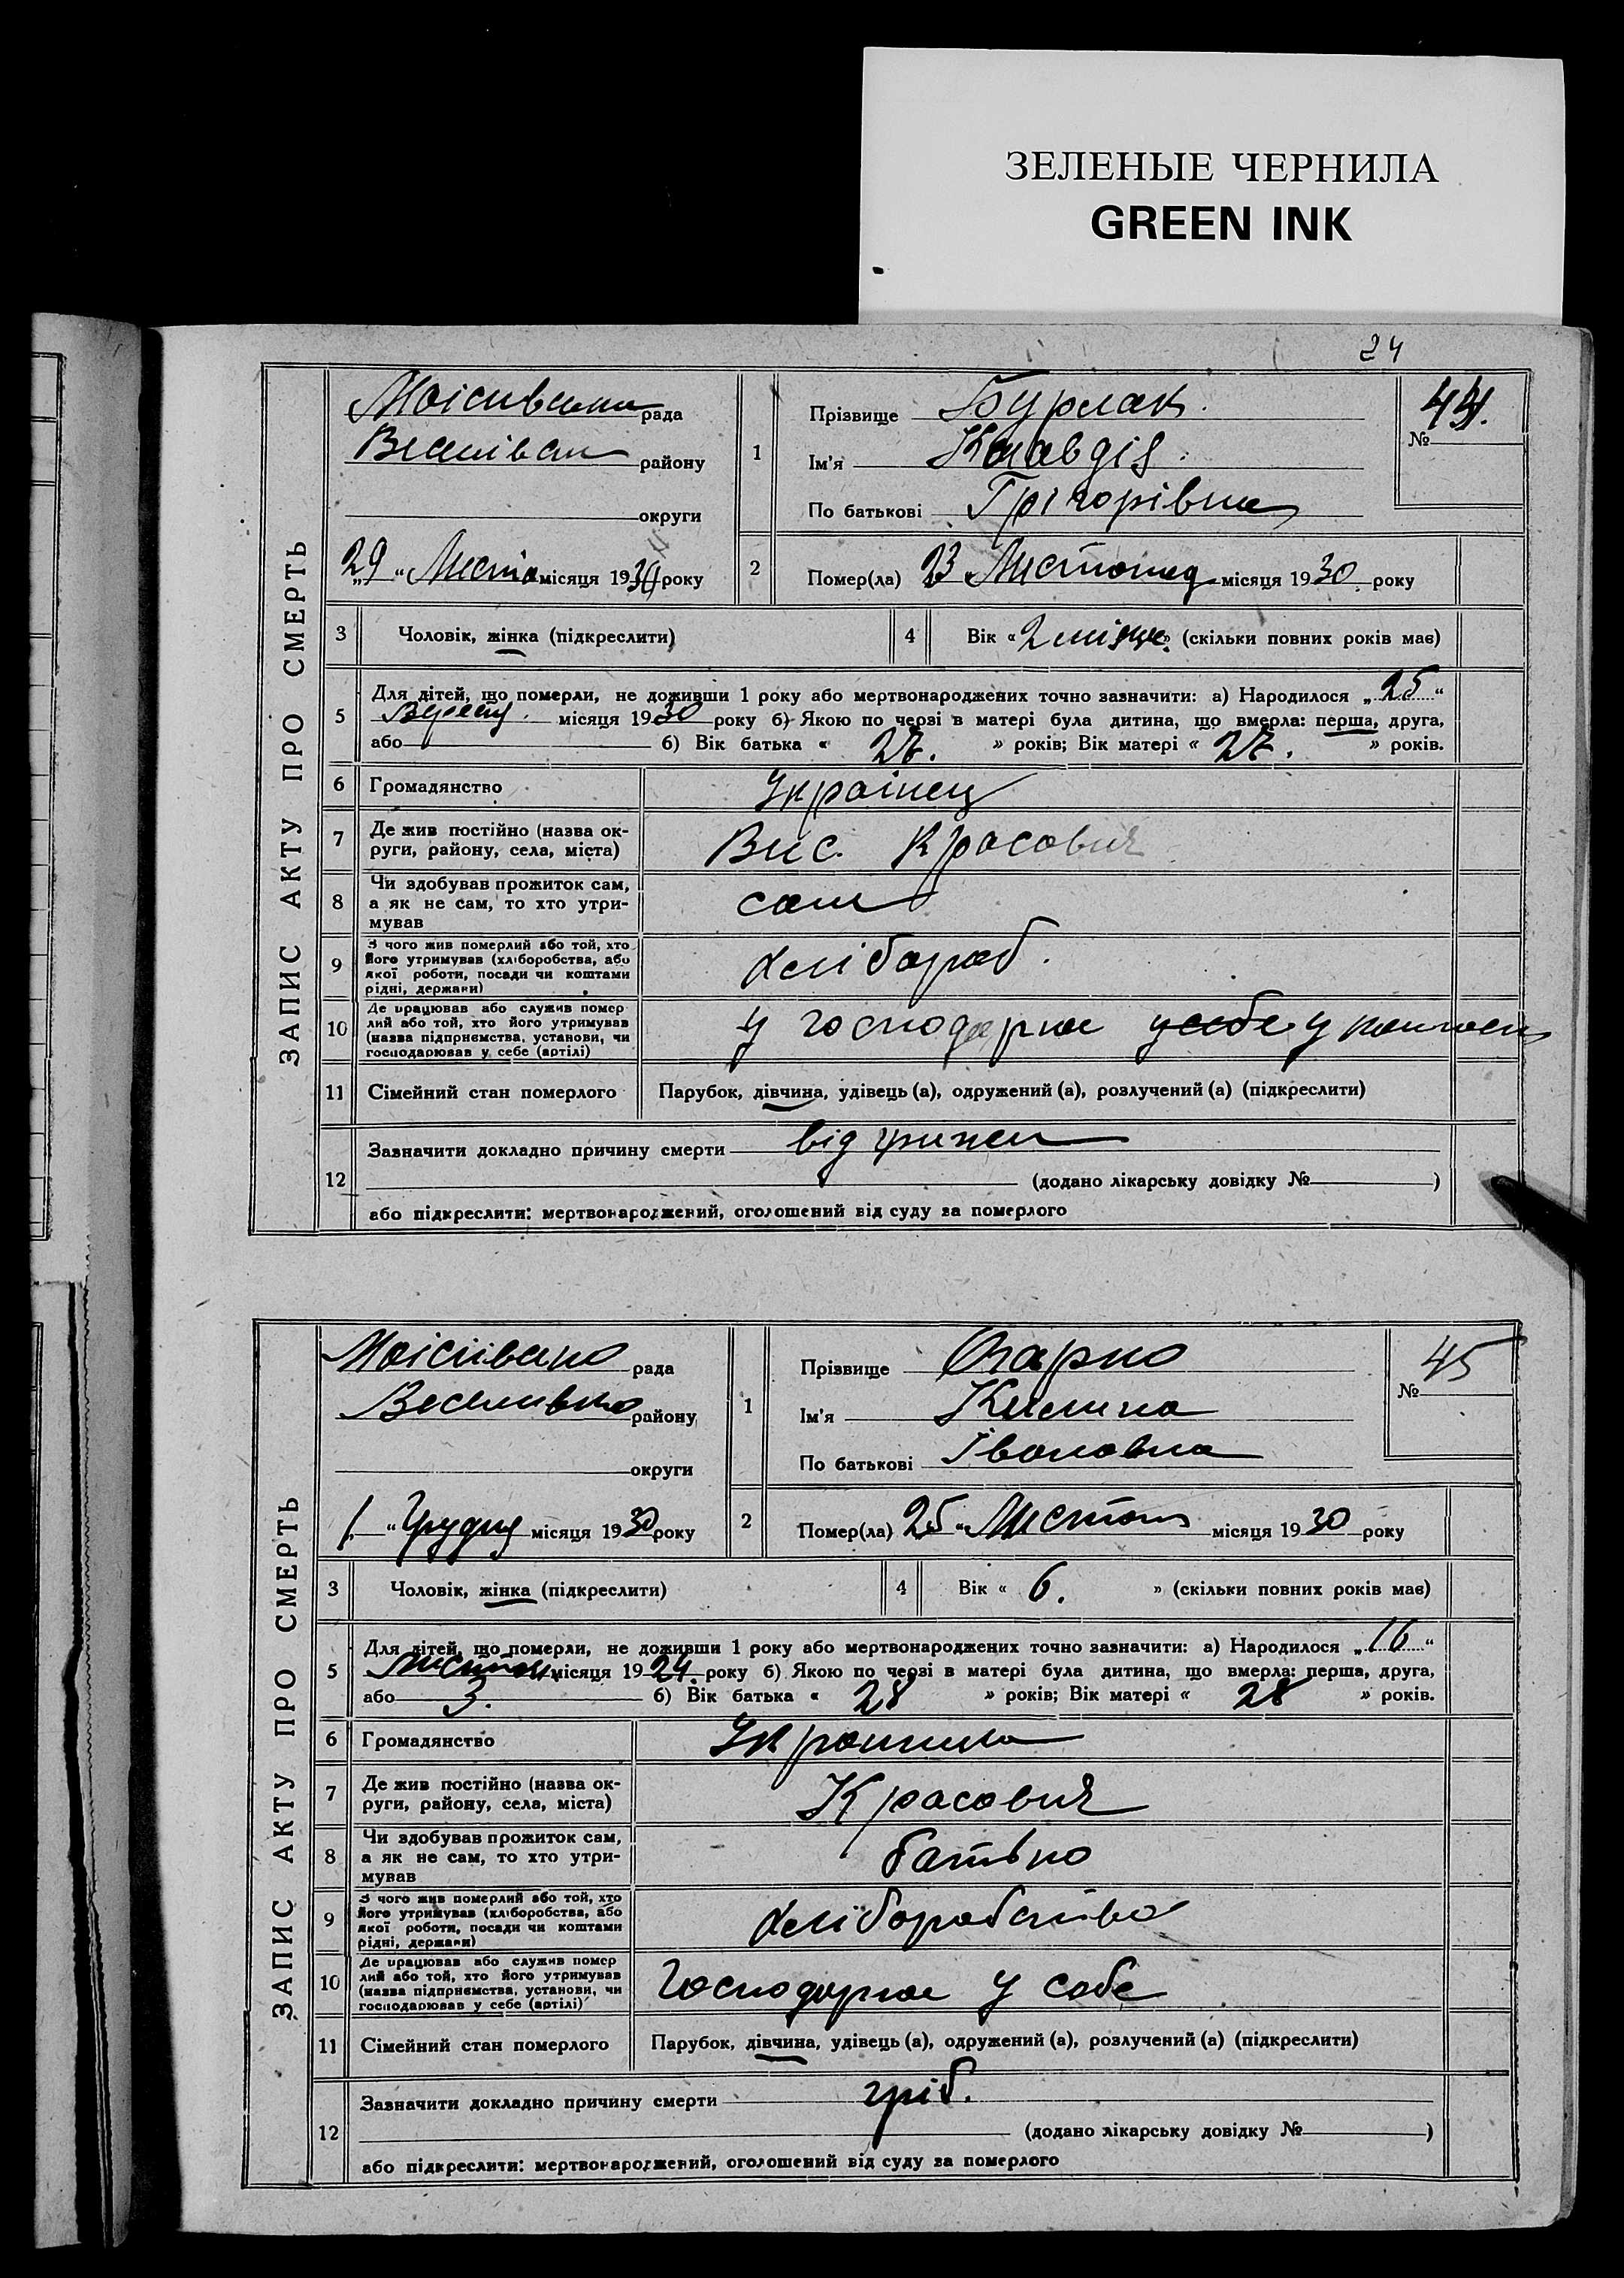 ЗЕЛЕНЫЕ ЧЕРНИЛА
GREEN INK
24
ЗАПИС АКТУ ПРО СМЕРТЬ
рада
району
округи
„29“ місяця 1930 року
1
Прізвище Бурлак.
Ім'я Клавдія.
По батькові Грігорівна
№ 44.
2
Помер(ла) 23 Листопад місяця 1930 року
3 Чоловік, жінка (підкреслити)
4 Вік « 2 місяце » (скільки повних років має)
5
Для дітей, що померли, не доживши 1 року або мертвонароджених точно зазначити: а) Народилося „ 25 “
місяця 1930 року б) Якою по черзі в матері була дитина, що вмерла: перша, друга,
або б) Вік батька « 27. » років; Вік матері « 27. » років.
6 Громадянство Українец
7 Де жив постійно (назва ок-
руги, району, села, міста) Вис. Красович
8 Чи здобував прожиток сам,
а як не сам, то хто утри-
мував сам
9 З чого жив померлий або той, хто
його утримував (хліборобства, або
якої роботи, посади чи коштами
рідні, держави) хлібораб.
10 Де працював або служив помер
лий або той, хто його утримував
(назва підприємства, установи, чи
господарював у себе (артілі) у
11 Сімейний стан померлого Парубок, дівчина, удівець (а), одружений (а), розлучений (а) (підкреслити)
12
Зазначити докладно причину смерти від
(додано лікарську довідку № )
або підкреслити: мертвонароджений, оголошений від суду за померлого
ЗАПИС АКТУ ПРО СМЕРТЬ
рада
району
округи
1 “ Грудня місяця 1930 року
1
Прізвище
Ім'я Килина
По батькові Івановна
№ 45
2
Помер(ла) 25 „ Листоп місяця 1930 року
3 Чоловік, жінка (підкреслити)
4 Вік « 6. » (скільки повних років має)
5
Для дітей, що померли, не доживши 1 року або мертвонароджених точно зазначити: а) Народилося „ 16 “
Листоп місяця 1924. року б) Якою по черзі в матері була дитина, що вмерла: перша, друга,
або 3. б) Вік батька « 28 » років; Вік матері « 28 » років.
6 Громадянство
7 Де жив постійно (назва ок-
руги, району, села, міста) Красович
8 Чи здобував прожиток сам,
а як не сам, то хто утри-
мував батько
9 З чого жив померлий або той, хто
його утримував (хліборобства, або
якої роботи, посади чи коштами
рідні, держави) хліборабство
10 Де працював або служив помер
лий або той, хто його утримував
(назва підприємства, установи, чи
господарював у себе (артілі) у себе
11 Сімейний стан померлого Парубок, дівчина, удівець (а), одружений (а), розлучений (а) (підкреслити)
12
Зазначити докладно причину смерти гріб.
(додано лікарську довідку № )
або підкреслити: мертвонароджений, оголошений від суду за померлого